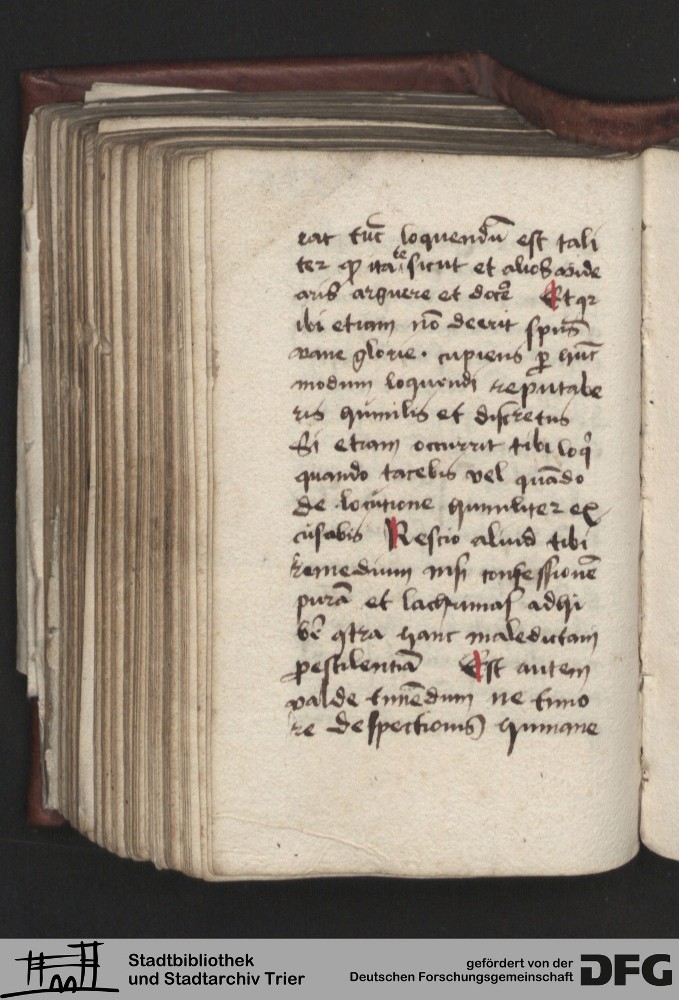 rat tūc loquendū est tali
ter ꝙ ita te sicut et alios vide
aris arguere et docē Et qr
ibi etiam nō deerit spūs
vane glorie. cupiens ꝑ hūc
modum loquendi reputabe
ris humilis et discretus
Si etiam occurrit tibi loqi
quando tacebis vel quādo
de locutione humiliter ex
cusabis Nescio aliud tibi
remedium nisi confessionē
purā et lachrimas adhi
bē ꝯtra hanc maledictam
pestilentiā Est autem
valde timēdum ne timo
re despectionis humane
Stadtbibliothek
und Stadtarchiv Trier
gefördert von der
Deutschen Forschungsgemeinschaft
DFG